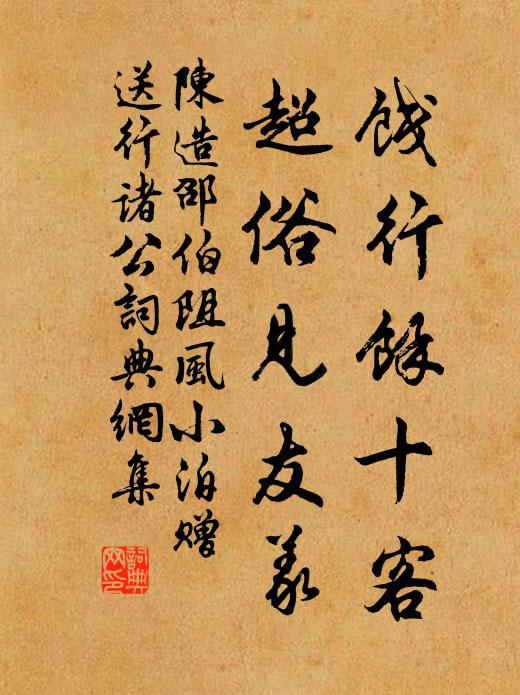 餞行餘十客
超俗見友義
陳造邵伯阻風小泊贈
送行诸公詞典網集
詞典
网印